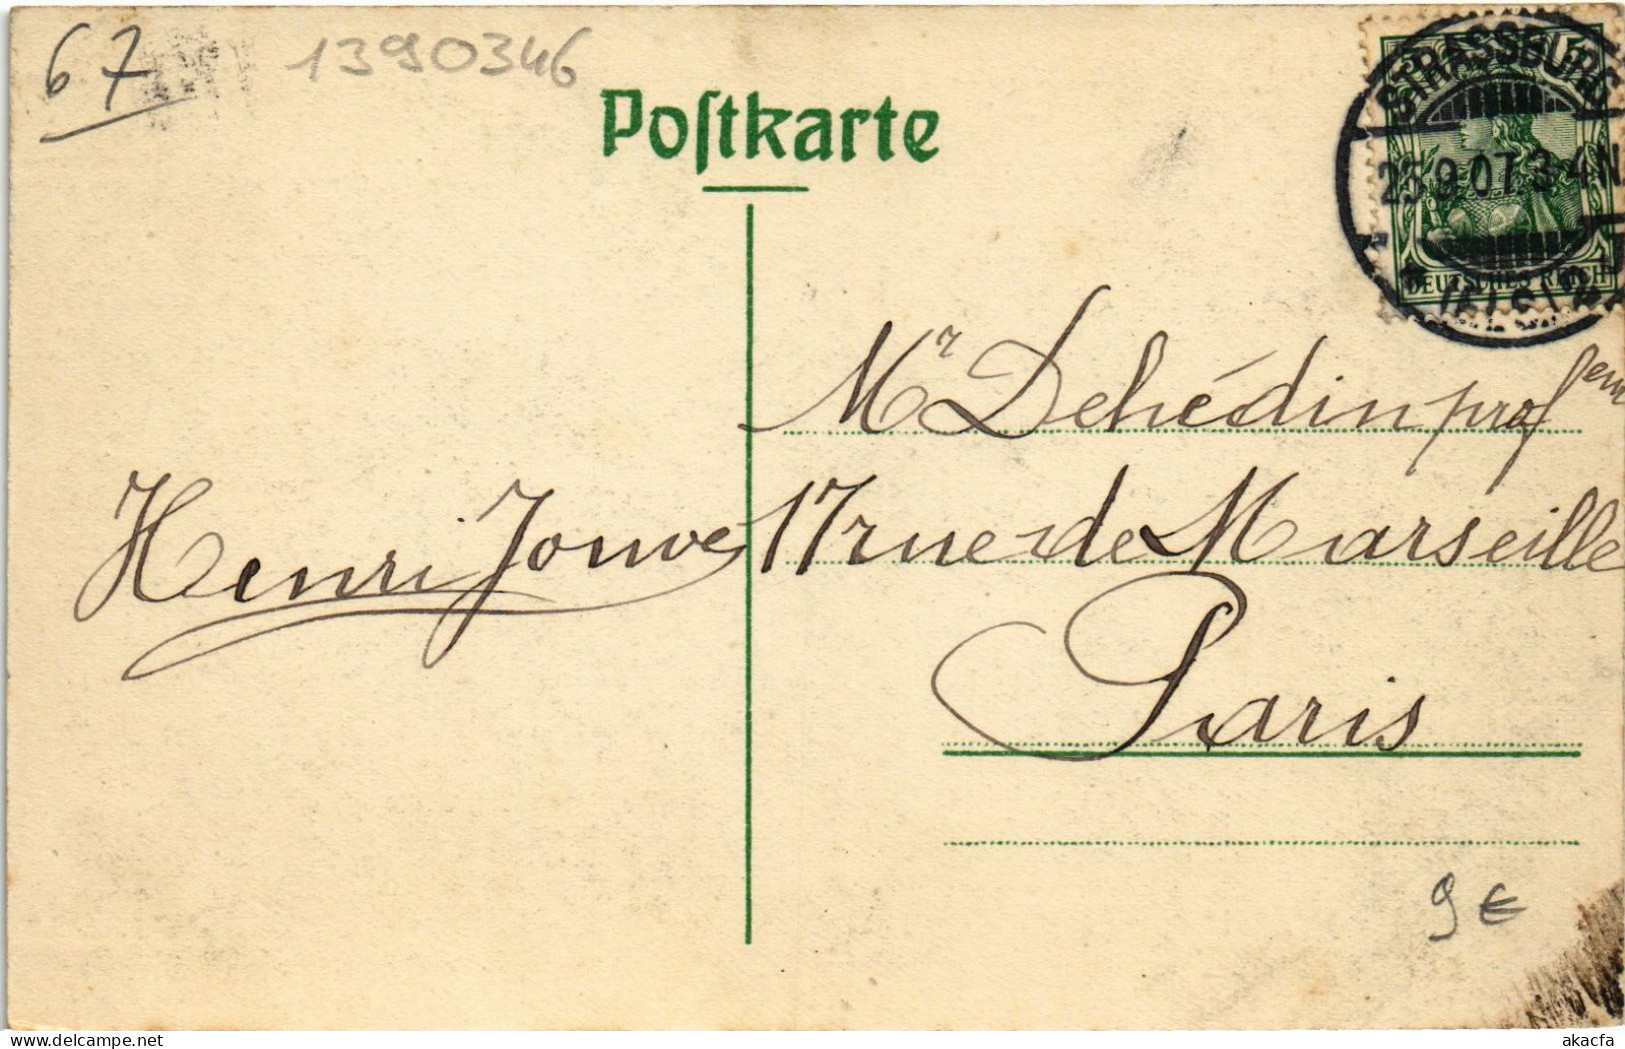 67
1390346
Postkarte
STRASSBURG
25.9.07.3-4N.
DEUTSCHES REICH
Mr Dehédin prof
Henri Jouve
17 rue de Marseille
Paris
9 €
delcampe.net
akacfa